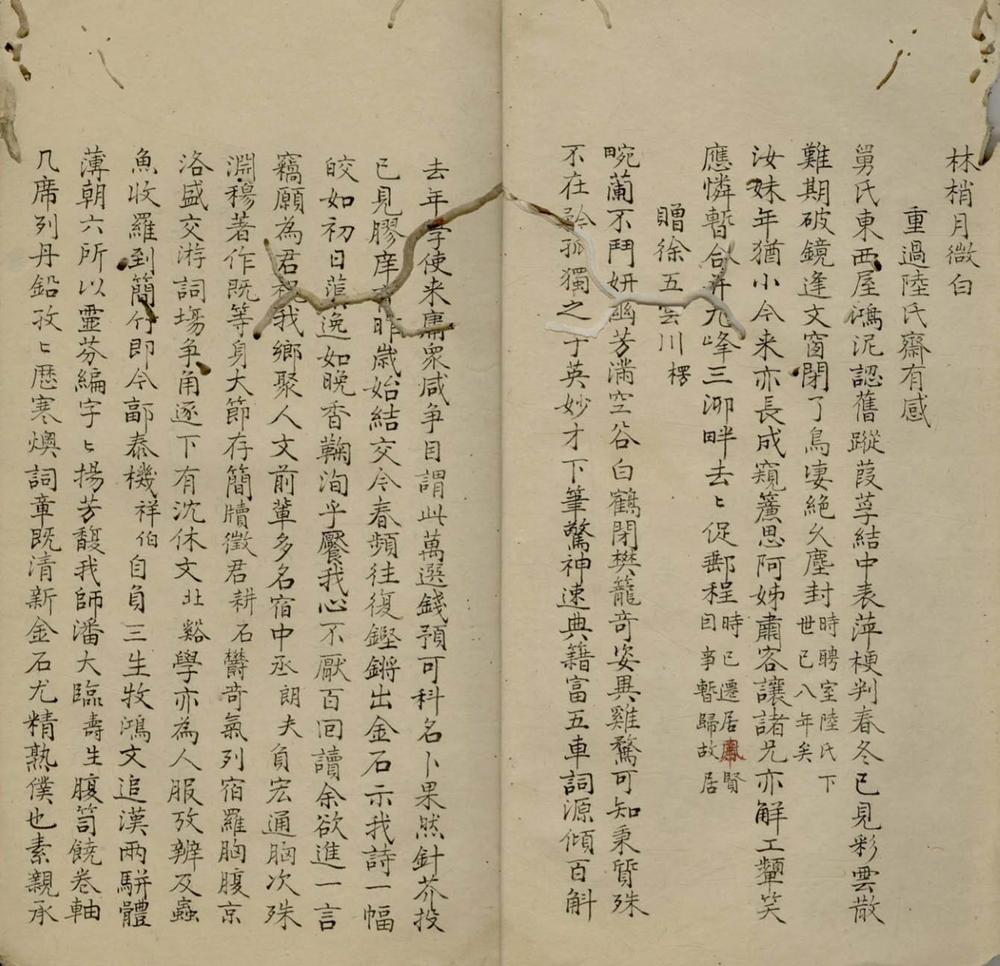 林梢月微白
重過陸氏齋有感
舅氏東西屋鴻泥認舊蹤葭莩結中表萍梗判春冬已見彩雲散
難期破鏡逢文窗閉了鳥凄絕久塵封時聘室陸氏下世已八年矣
汝妹年猶小今来亦長成窺簾思阿姊肅客讓諸兄亦解工顰笑
應憐暫合并九峰三泖畔去〻促郵程時已遷居鳳賢因事暫歸故居
贈徐五雲川楞
畹蘭不鬥妍幽芳滿空谷白鶴閉樊籠奇姿異雞鶩可知秉質殊
不在矜孤獨之子于英妙才下筆驚神速典籍富五車詞源傾百斛
去年學使来庸衆咸争目謂此萬選錢預可科名卜果然針芥投
已見膠庠昨歲始結交今春頻往復鏗鏘出金石示我詩一幅
皎如初日蕖逸如晚香鞠洵乎饜我心不厭百回讀余欲進一言
竊願為君祝我鄉聚人文前輩多名宿中丞朗夫負宏通胸次殊
淵穆著作既等身大節存簡牘徵君耕石鬱奇氣列宿羅胸腹京
洛盛交游詞場争角逐下有沈休文北谿學亦為人服攷辨及蟲
魚收羅到簡竹即今鄗泰機祥伯自負三生牧鴻文追漢兩駢體
薄朝六所以靈芬編字〻揚芳馥我師潘大臨壽生腹笥饒卷軸
几席列丹鉛孜〻歷寒燠詞章既清新金石尤精熟僕也素親承